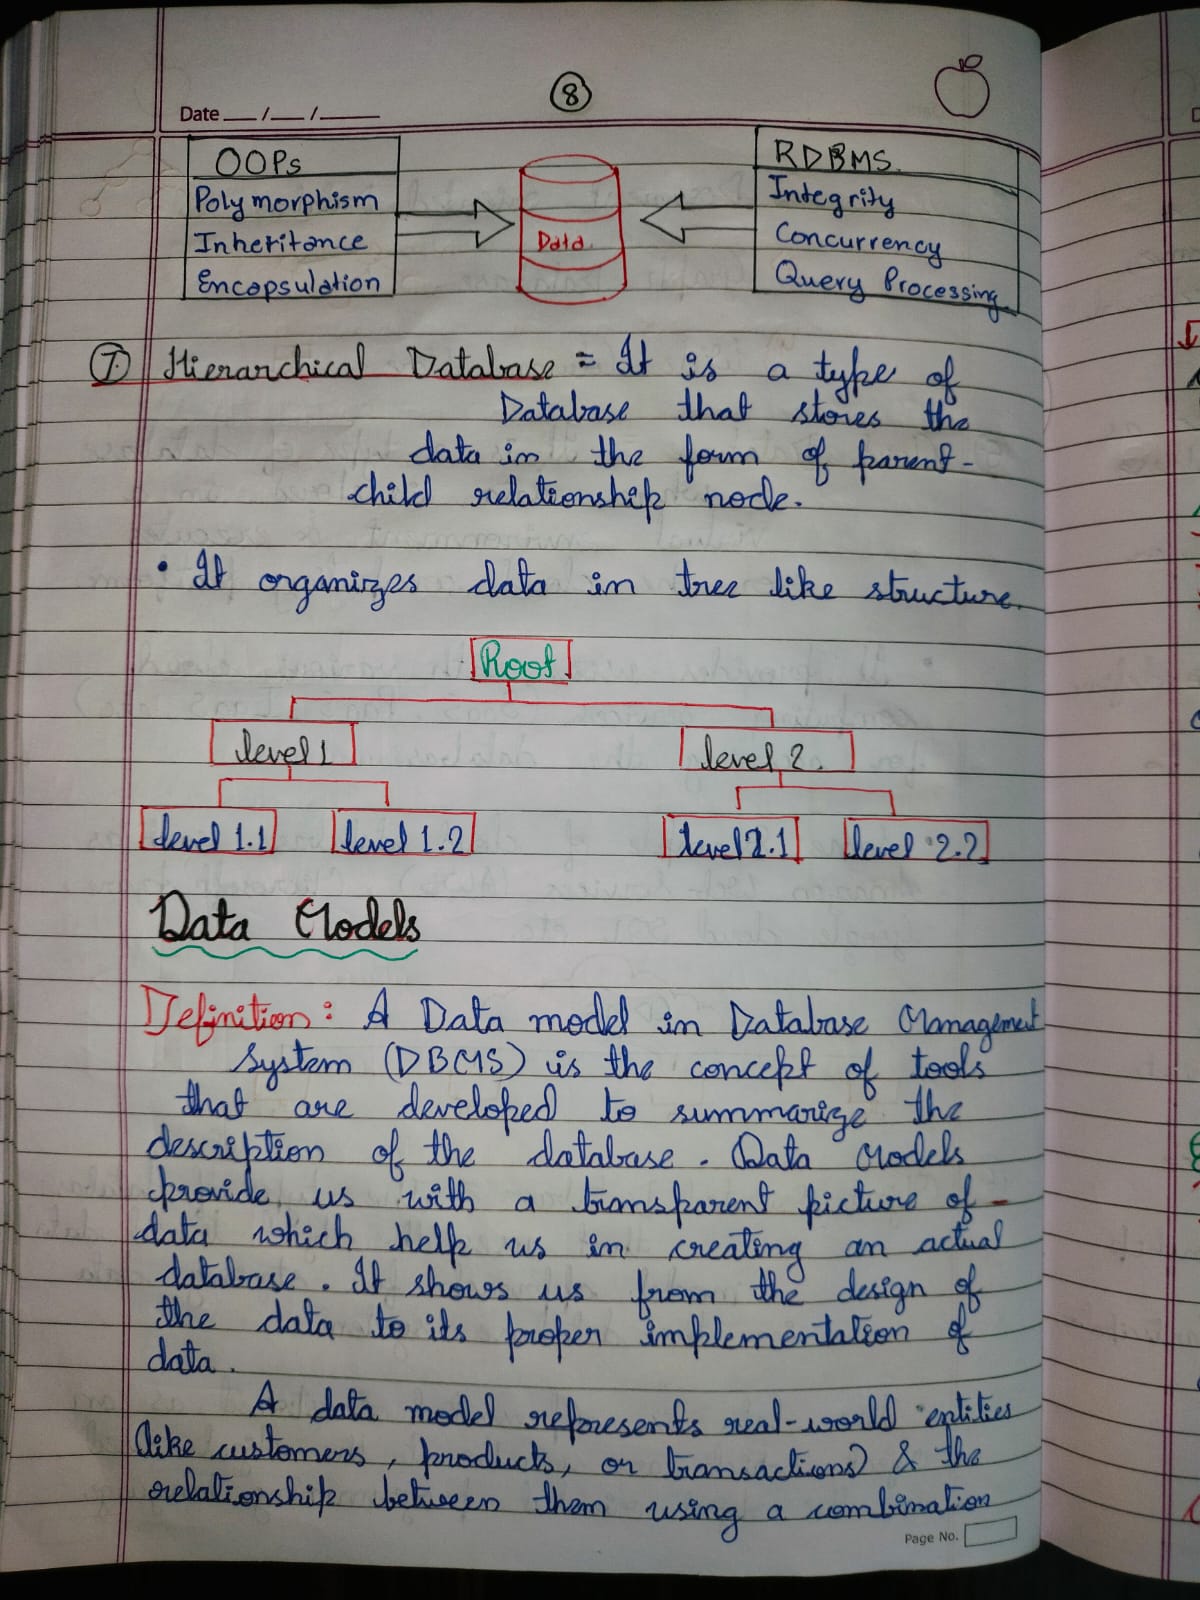 8
Date __/__/____
OOPs
Polymorphism
Inheritance
Encapsulation
Data
RDBMS
Integrity
Concurrency
Query Processing
7. Hierarchical Database = It is a type of
Database that stores the
data in the form of parent-
child relationship node.
• It organizes data in tree like structure.
Root
level 1 level 2.
level 1.1 level 1.2 level 2.1 level 2.2
Data Models
Definition: A Data model in Database Management
System (DBMS) is the concept of tools
that are developed to summarize the
description of the database. Data Models
provide us with a transparent picture of
data which help us in creating an actual
database. It shows us from the design of
the data to its proper implementation of
data.
A data model represents real-world entities
(like customers, products, or transactions) & the
relationship between them using a combination
Page No.